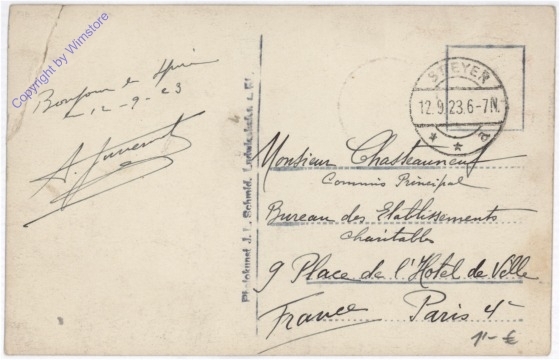 Copyright by Wimstore
Bonjour de Spire
12-9-23
SPEYER
12.9.23.6-7N.
* * a
Photokunst J. L. Schmid, Ludwigshafen a. Rh.
Monsieur Chasteauneuf
Commis Principal
Bureau des Etablissements
charitables
9 Place de l'Hotel de Ville
France Paris 4e